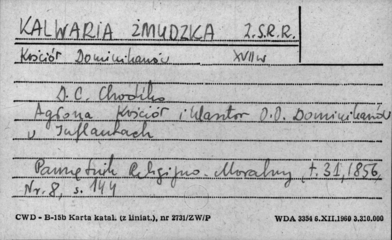 KALWARIA ŻMUDZKA Z.S.R.R.
Kościół Dominikanów XVII w
D. C. Chodźko
Agłona Kościół i klasztor O.O. Dominikanów
w Inflantach
Pamiętnik Religijno-Moralny, t. 31, 1856,
Nr. 8, s. 144
CWD - B-15b Karta katal. (z liniat.), nr 2731/ZW/P WDA 3354 6.XII.1960 3.210.000